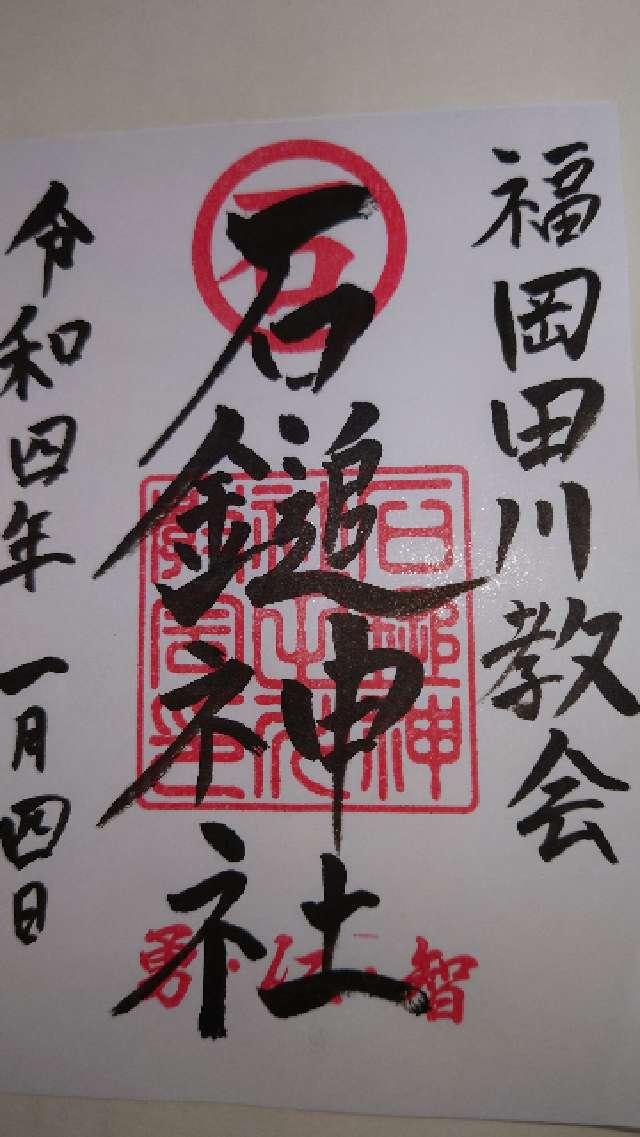 福岡田川教会
石
石鎚神社
智・仁・勇
令和四年一月四日